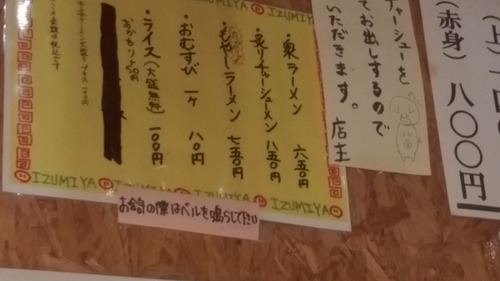 (上)
(赤身) 八〇〇円
チャーシューを
てお出しするので
いただきます。店主
IZUMIYA
・泉ラーメン 六五〇円
・炙りチャーシューメン 八五〇円
・もやしラーメン 七五〇円
・おむすび 一ケ 八〇円
・ライス(大盛無料) 一〇〇円
おかわり+50円
IZUMIYA
IZUMIYA
お会計の際はベルを鳴らして下さい